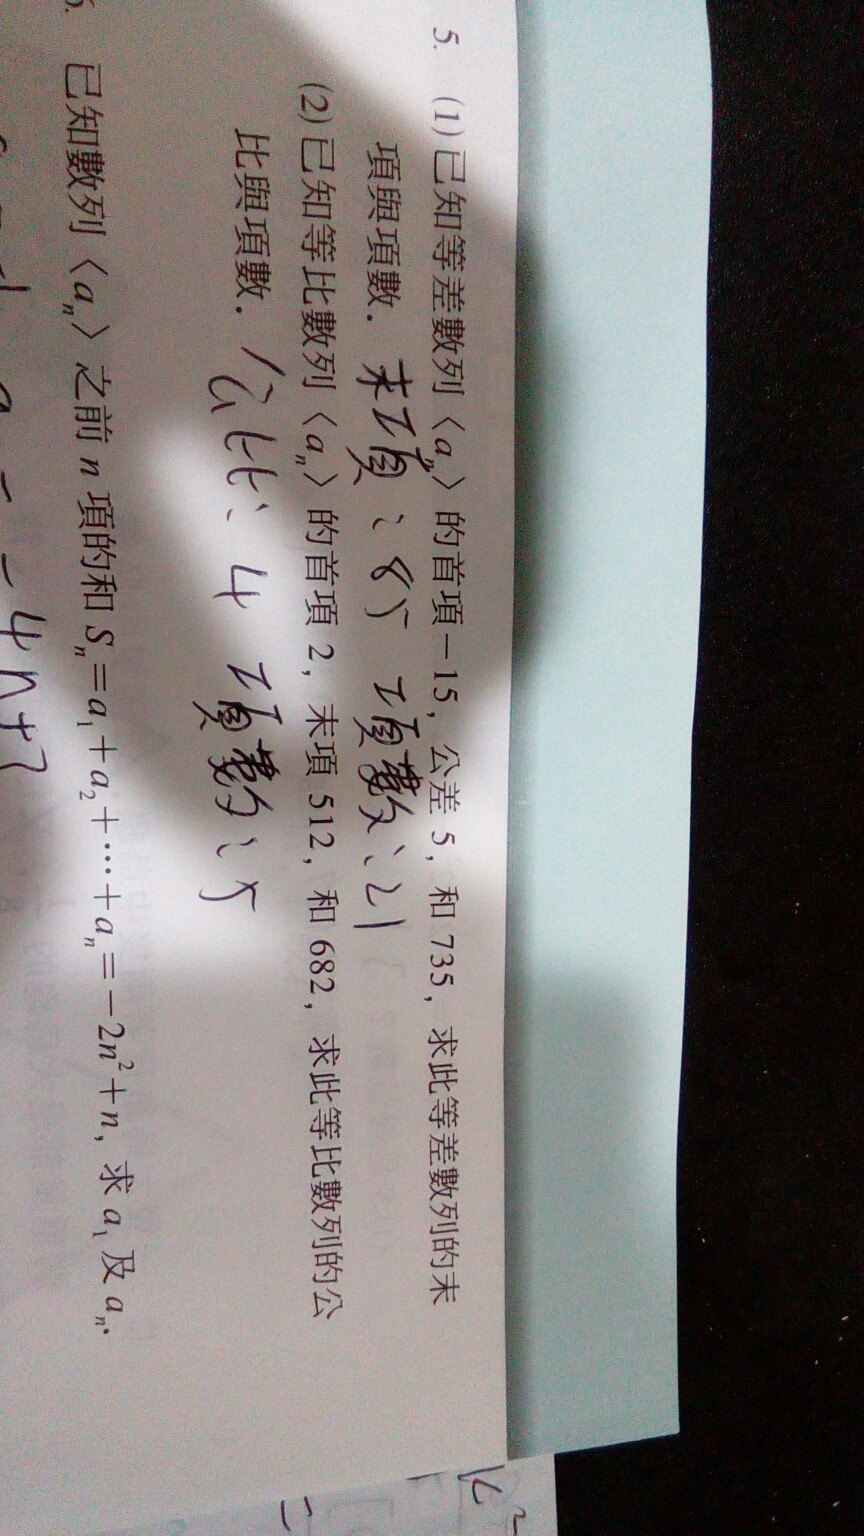 5. (1)已知等差數列〈aₙ〉的首項－15，公差 5，和 735，求此等差數列的末
項與項數．末項：85 項數：21
(2)已知等比數列〈aₙ〉的首項 2，末項 512，和 682，求此等比數列的公
比與項數．公比：4 項數：5
已知數列〈aₙ〉之前 n 項的和 Sₙ＝a₁＋a₂＋⋯＋aₙ＝－2n²＋n，求 a₁ 及 aₙ．
－4n+3